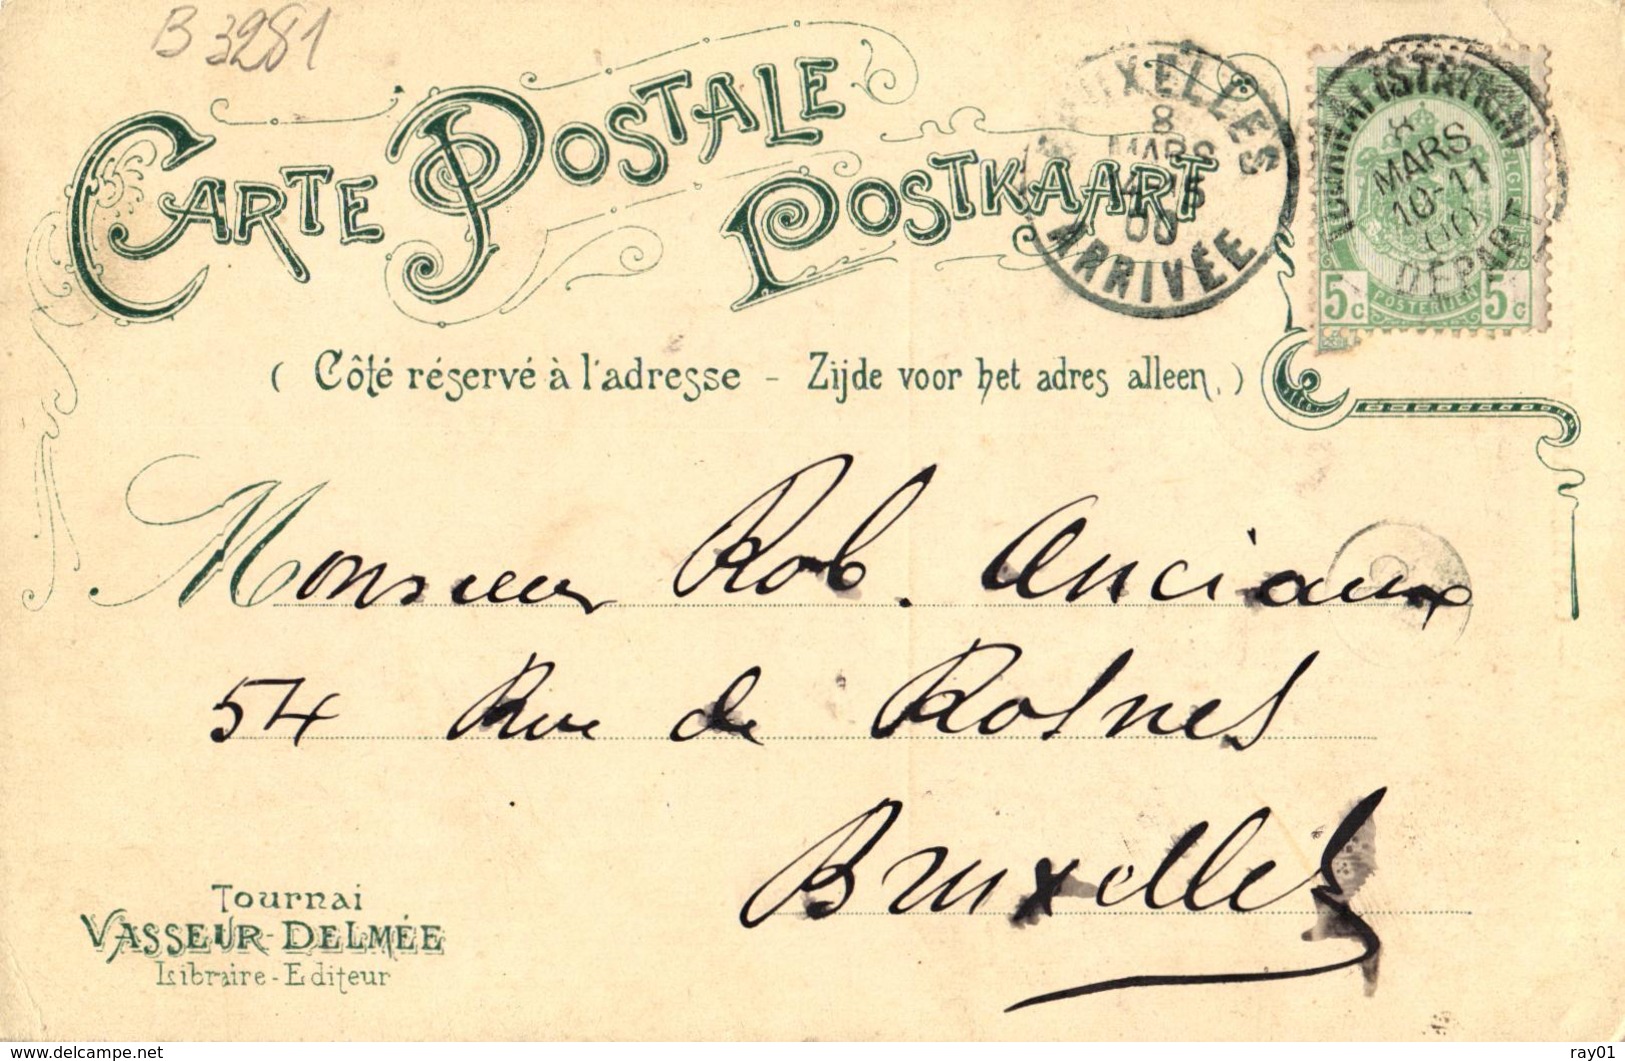 B 3281
CARTE POSTALE
POSTKAART
BRUXELLES
8
MARS
00
ARRIVÉE
TOURNAI (STATION)
8
MARS
10-11
00
DÉPART
5c POSTERIJEN 5c
( Côté réservé à l'adresse – Zijde voor het adres alleen. )
Monsieur Rob. Anciaux
54 Rue de Rosnes
Bruxelles
Tournai
VASSEUR-DELMÉE
Libraire-Editeur
delcampe.net
ray01